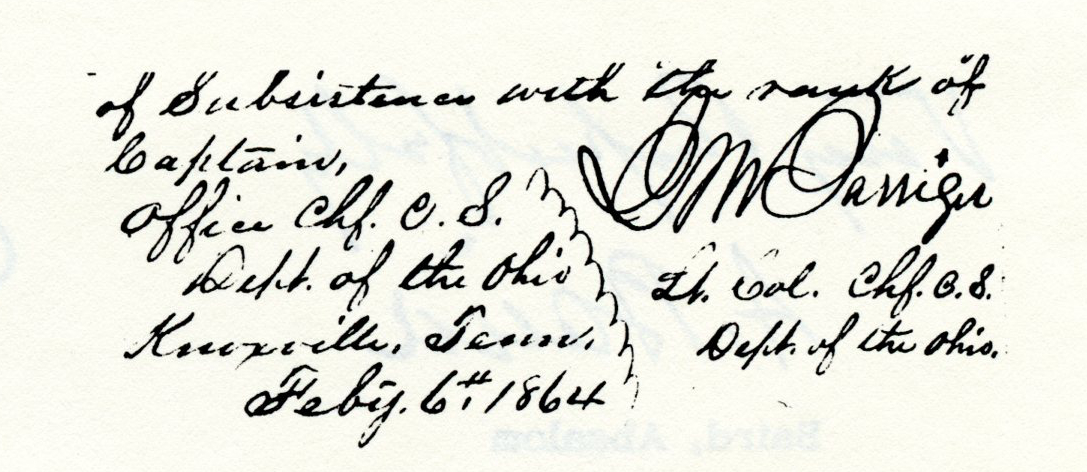 of Subsistence with the rank of
Captain,
Office Chf. C. S.
Dept. of the Ohio
Knoxville, Tenn.
Feby. 6th 1864
Lt. Col. Chf. C. S.
Dept. of the Ohio.
Baird, Absalom